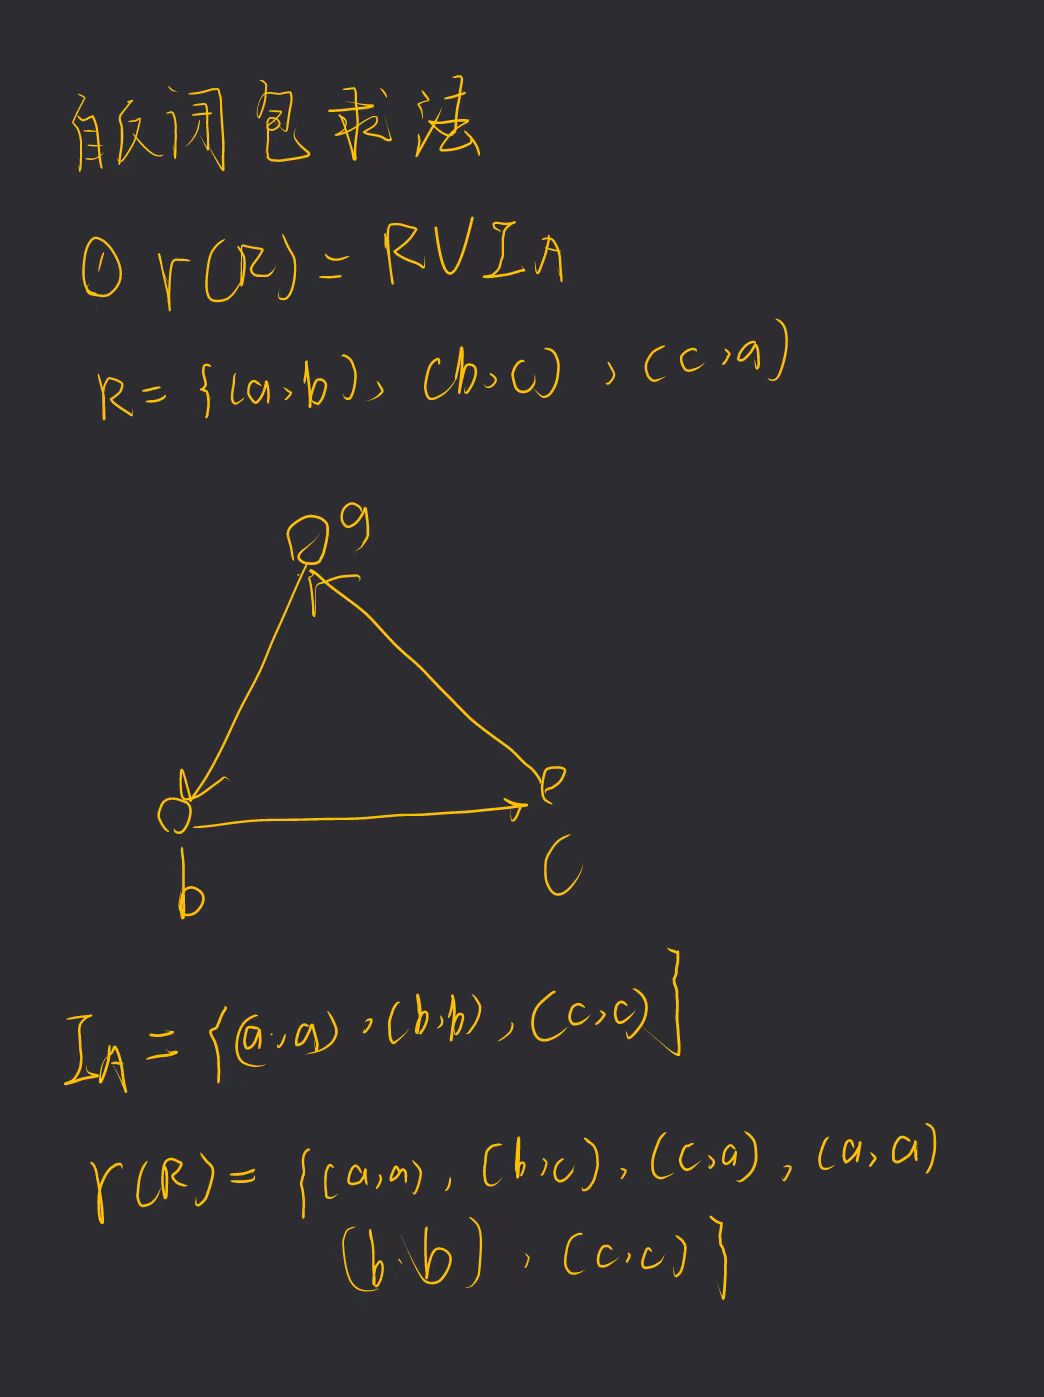 自反闭包求法
① r(R) = R∪I_A
R = {(a,b), (b,c), (c,a)
a
b
c
I_A = {(a,a), (b,b), (c,c)}
r(R) = {(a,a), (b,c), (c,a), (a,a)
(b,b), (c,c)}